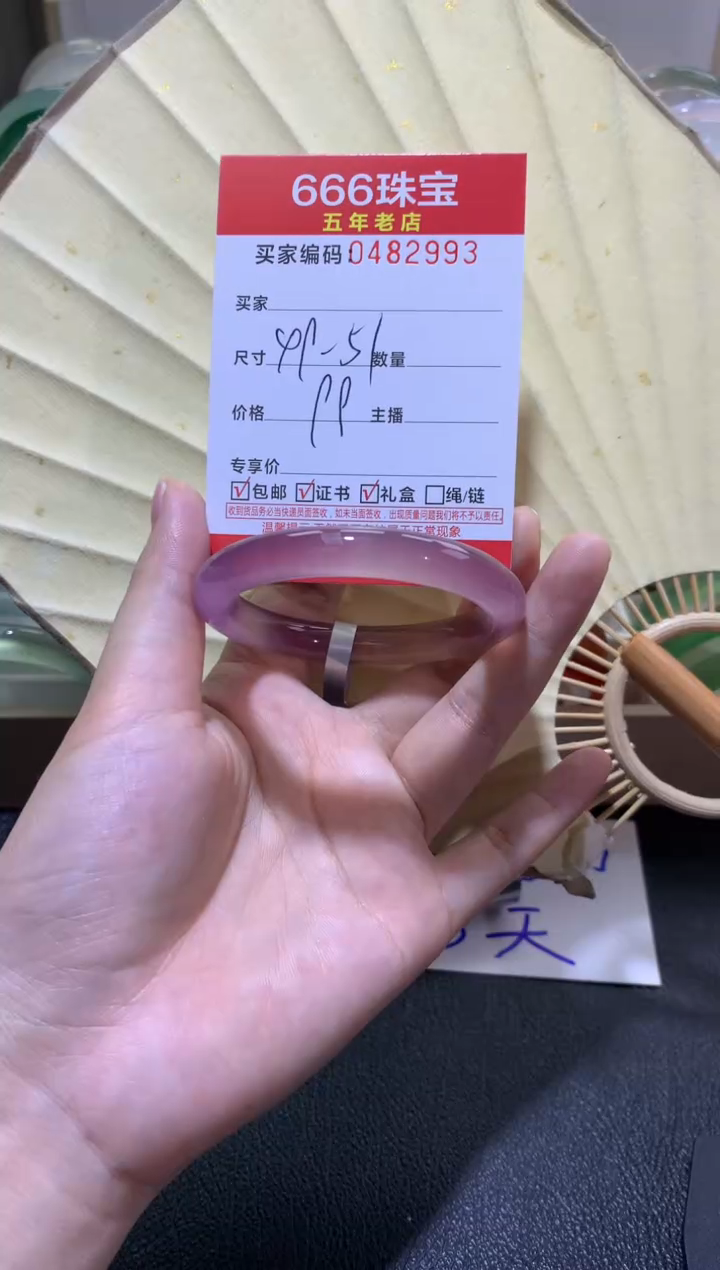 666珠宝
五年老店
买家编码:0482993
买家
尺寸 数量
价格 主播
专享价
包邮 证书 礼盒 绳/链
收到货品务必当快递员面签收,如未当面签收,出现质量问题我们将不予以责任。
温馨提示
正常现象
天